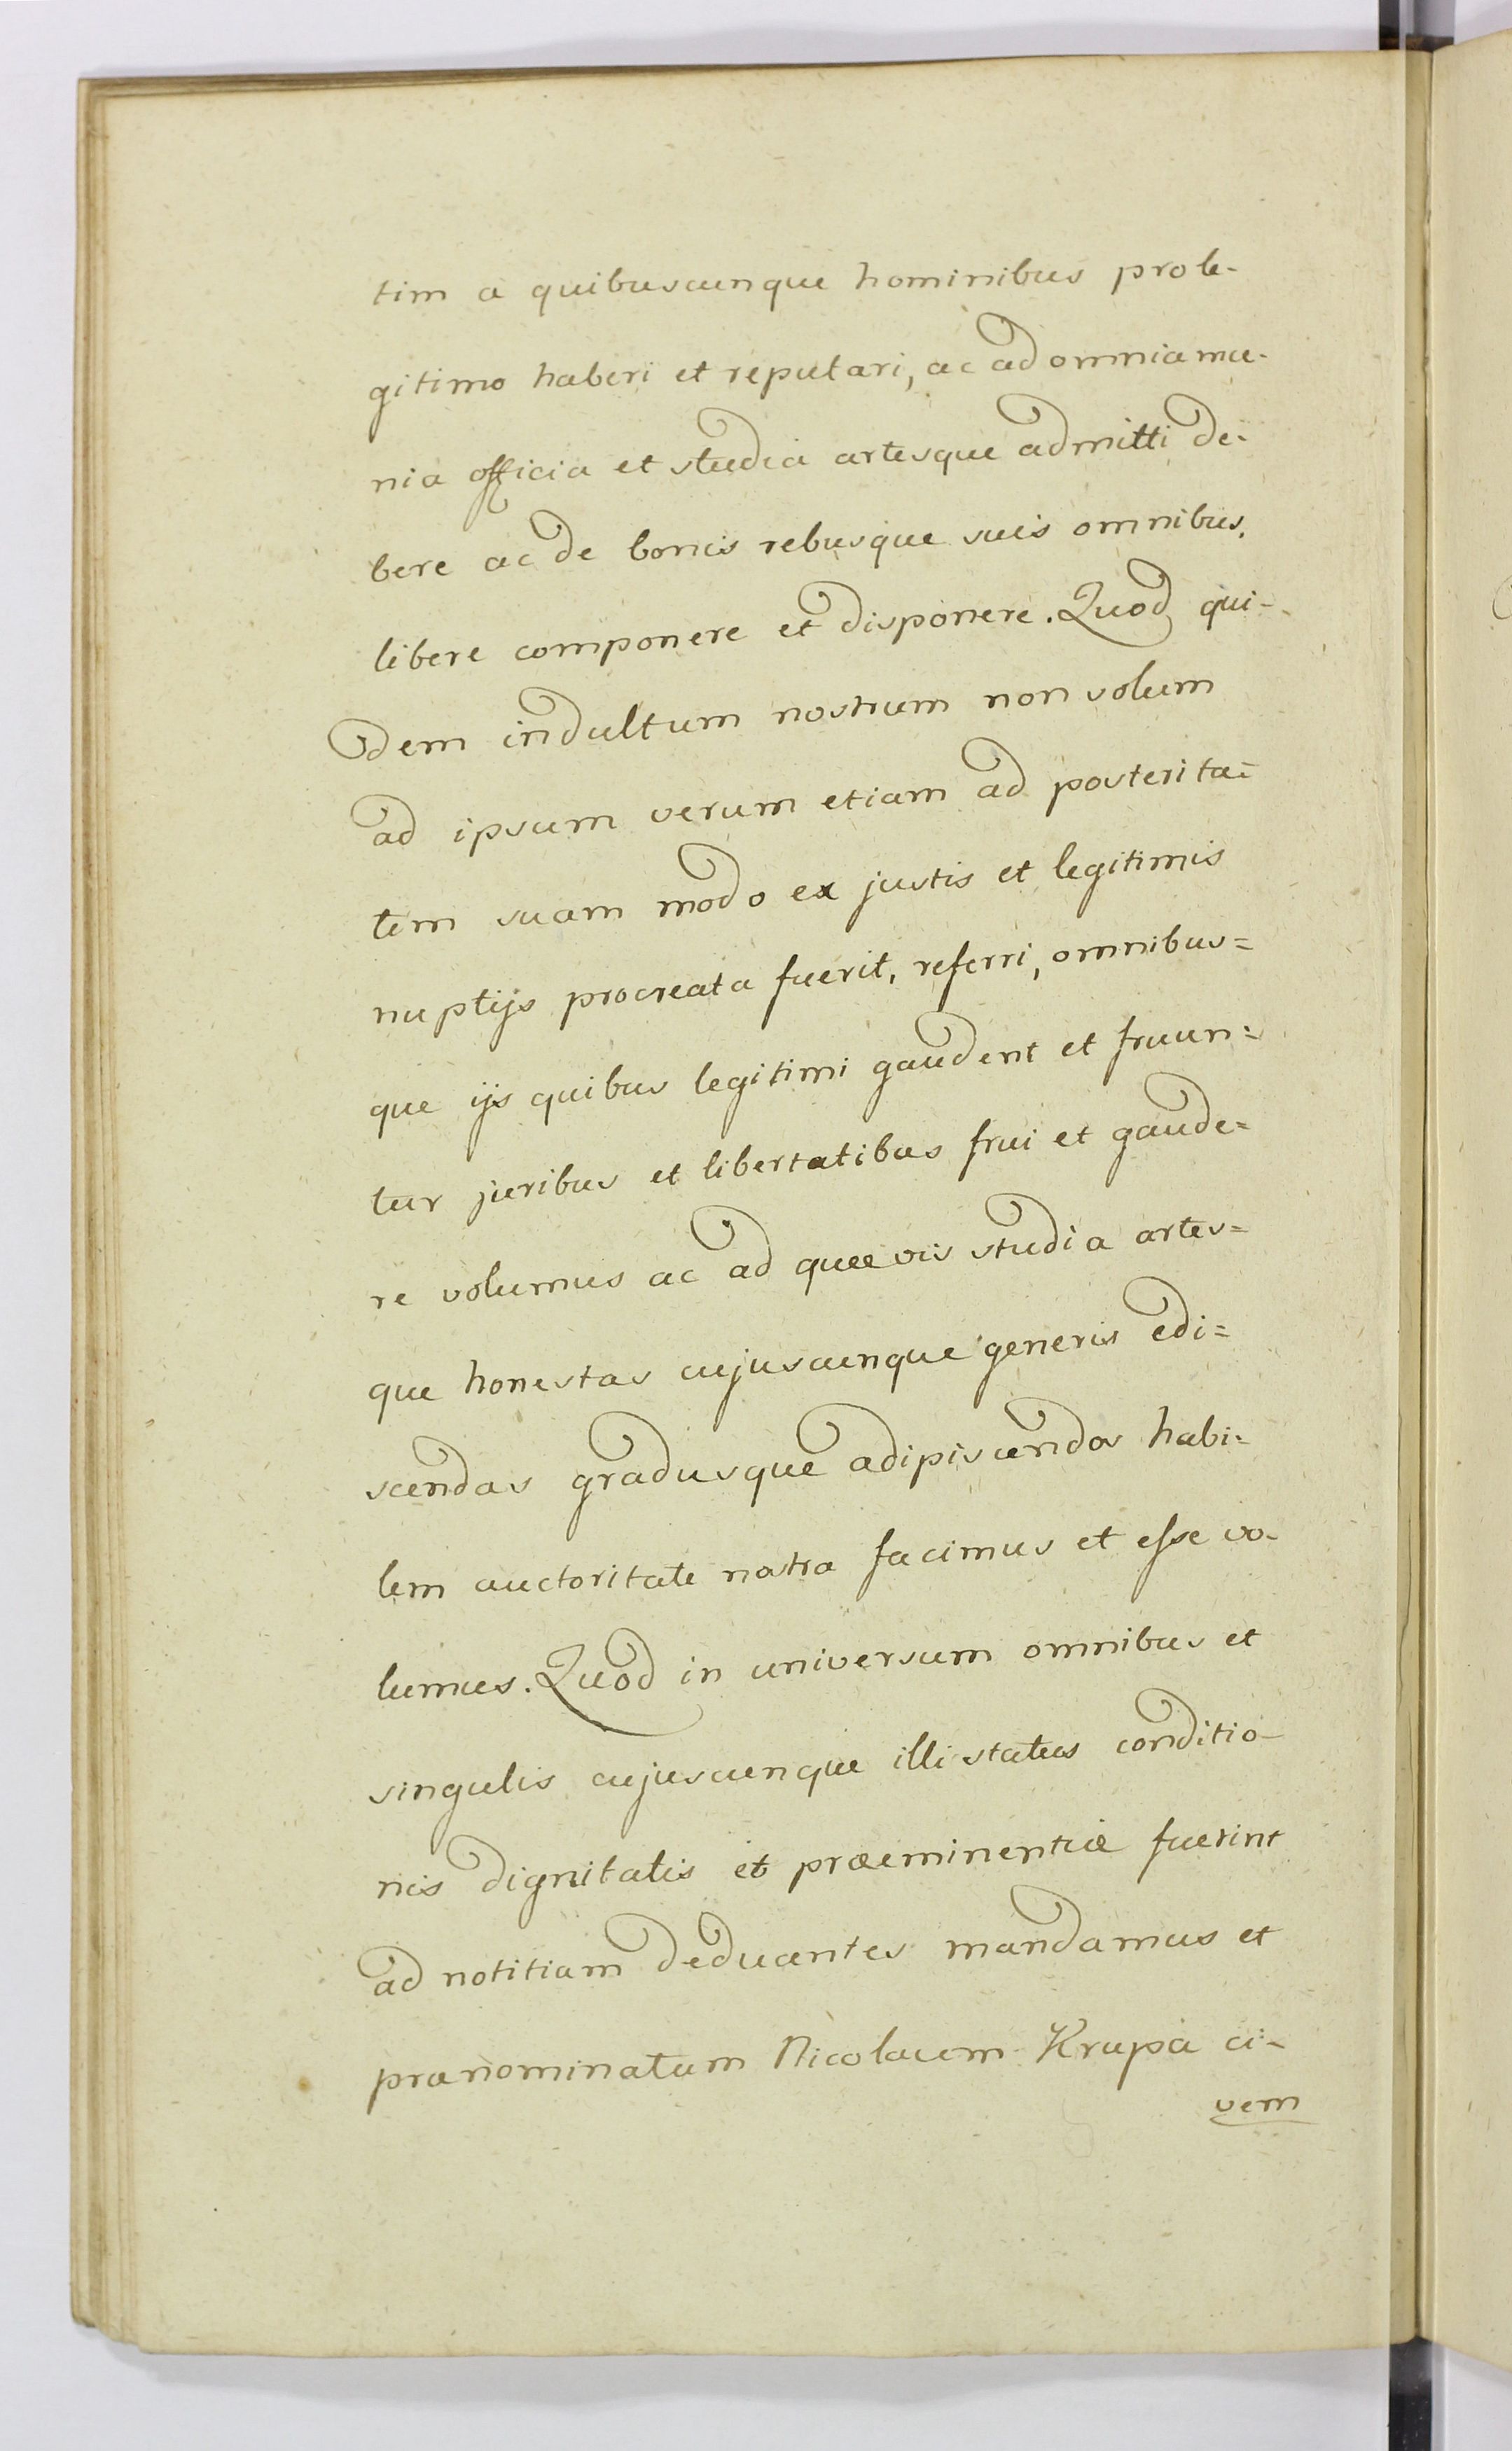 tim a quibuscunque hominibus prole-
gitimo haberi et reputari, ac ad omnia mu-
nia officia et studia artesque admitti de-
bere ac de bonis rebusque suis omnibus,
libere componere et disponere. Quod qui-
dem indultum nostrum non solum
ad ipsum verum etiam ad posterita=
tem suam modo ex justis et legitimis
nuptijs procreata fuerit, referri, omnibus=
que ijs quibus legitimi gaudent et fruun=
tur juribus et libertatibus frui et gaude=
re volumus ac ad quævis studia artes=
que honestas cujuscunque generis edi=
scendas gradusque adipiscendos habi=
lem auctoritate nostra facimus et esse vo-
lumus. Quod in universum omnibus et
singulis cujuscunque illi status conditio-
nis dignitatis et præeminentiæ fuerint
ad notitiam deducentes mandamus et
prænominatum Nicolaum Krupa ci-
vem